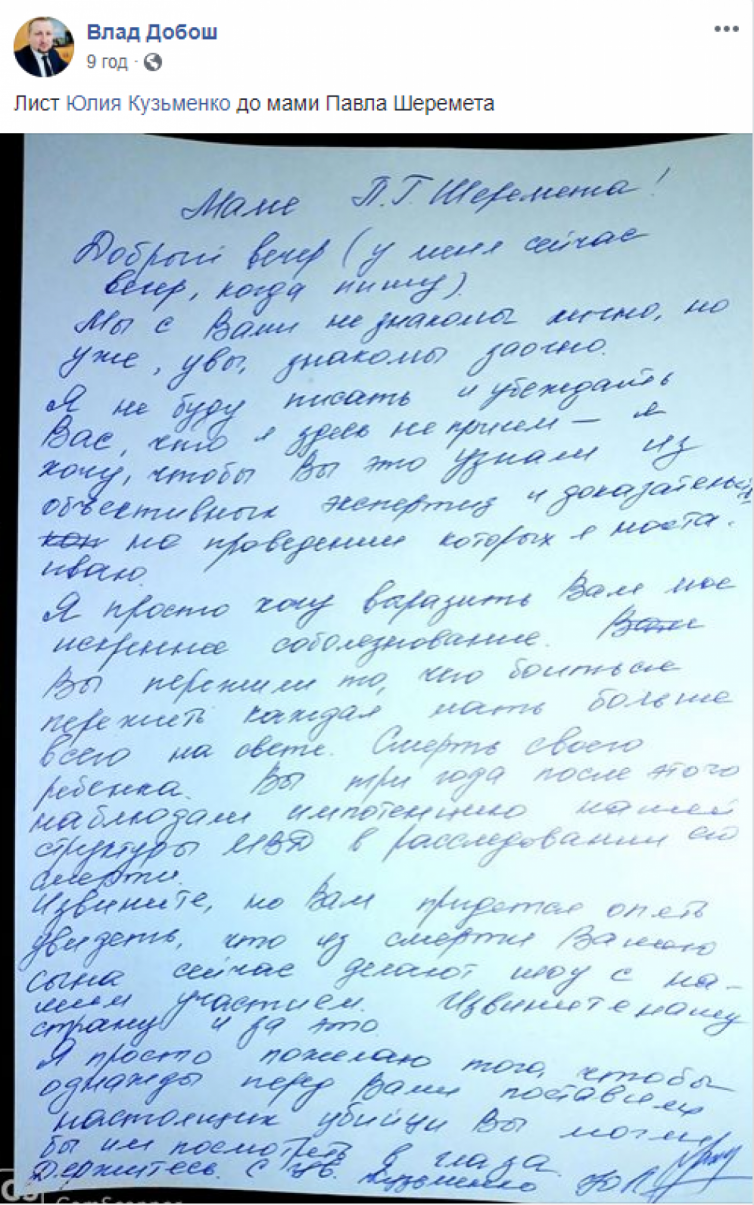 Влад Добош
9 год ·
Лист Юлия Кузьменко до мами Павла Шеремета
Маме П.Г. Шеремета!
Добрый вечер (у меня сейчас
вечер, когда пишу).
Мы с Вами не знакомы лично, но
уже, увы, знакомы заочно.
Я не буду писать и убеждать
Вас, что я здесь не причем — я
хочу, чтобы Вы это узнали из
объективных экспертиз и доказательств,
на проведении которых я наста-
иваю.
Я просто хочу выразить Вам мое
искреннее соболезнование.
Вы пережили то, чего боиться
пережить каждая мать больше
всего на свете. Смерть своего
ребенка. Вы три года после этого
наблюдали импотенцию нашей
структуры МВД в расследовании его
смерти.
Извините, но Вам придется опять
увидеть, что из смерти Вашего
сына сейчас делают шоу с на-
шим участием. Извините нашу
страну и за это.
Я просто пожелаю того, чтобы
однажды перед Вами поставили
настоящих убийц и Вы могли
бы им посмотреть в глаза.
Держитесь. С ув. Кузьменко Ю.А.
CS CamScanner